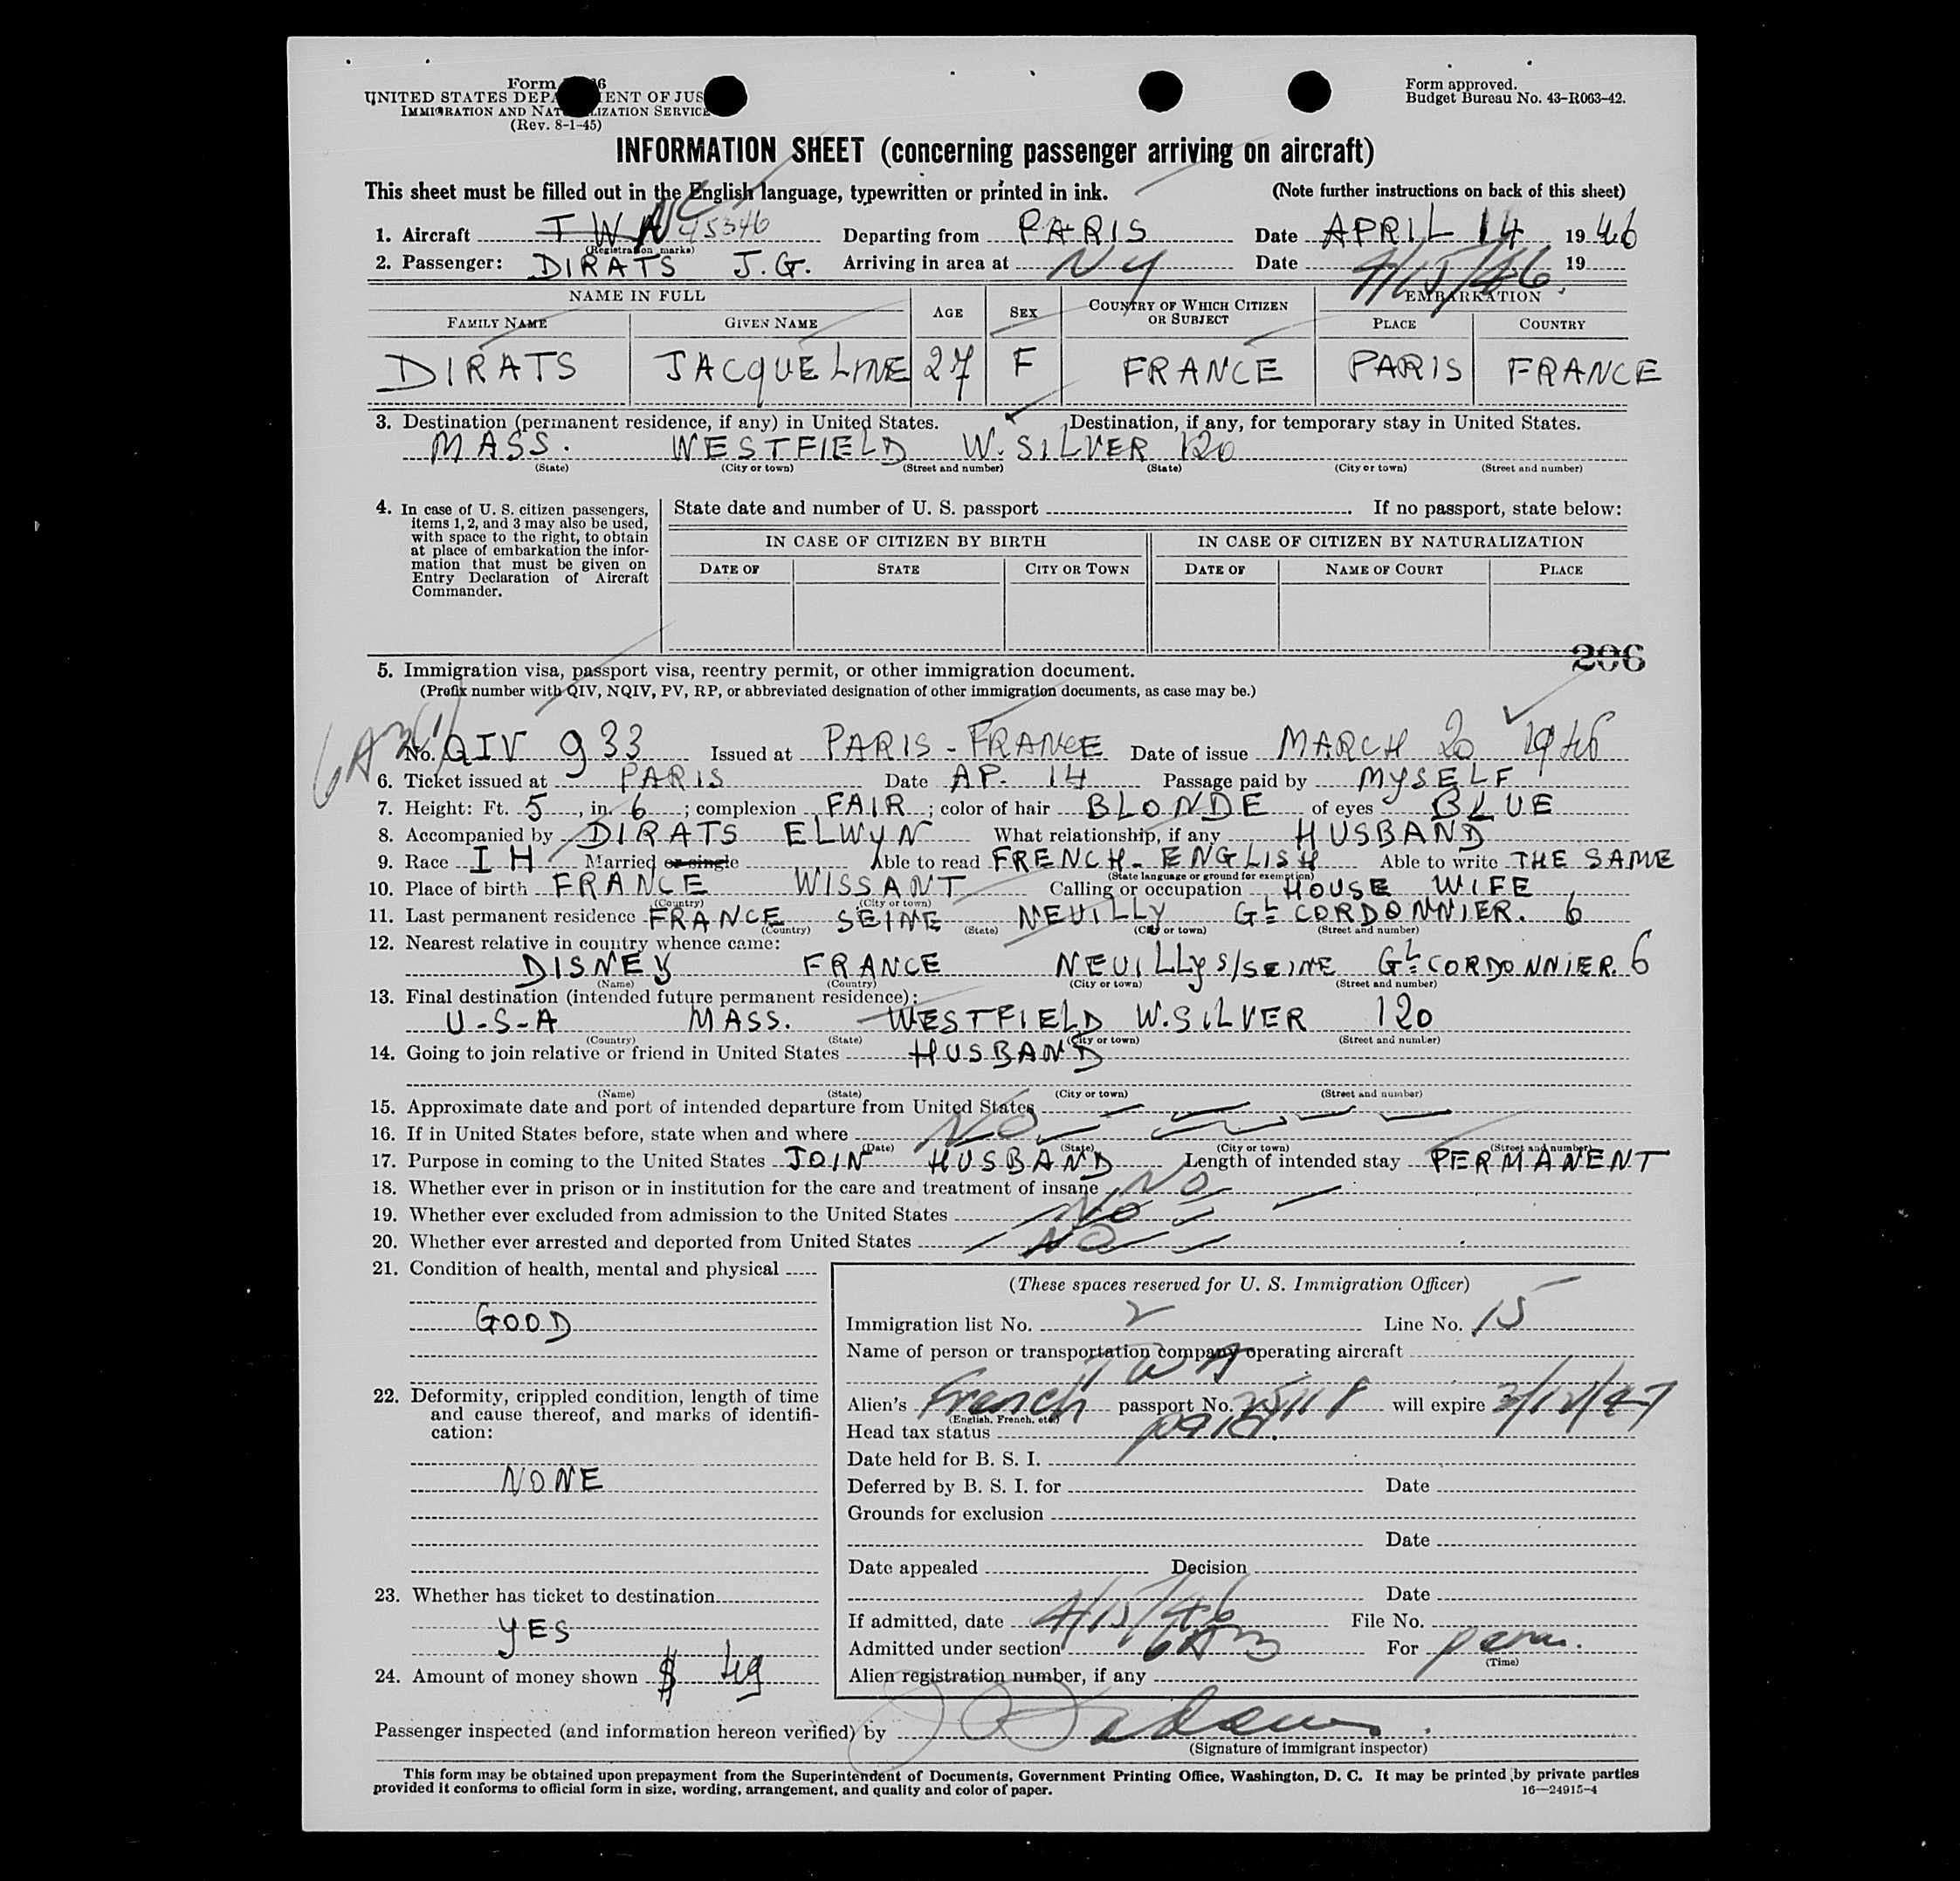 Form 6
UNITED STATES DEPA ENT OF JUS
IMMIGRATION AND NAT LIZATION SERVICE
(Rev. 8-1-45)
Form approved.
Budget Bureau No. 43-R063-42.
INFORMATION SHEET (concerning passenger arriving on aircraft)
This sheet must be filled out in the English language, typewritten or printed in ink. (Note further instructions on back of this sheet)
1. Aircraft TWA NC 45346 Departing from PARIS Date APRIL 14 1946
(Registration marks)
2. Passenger: DIRATS J.G. Arriving in area at NY Date 4/15/46 19
NAME IN FULL AGE SEX COUNTRY OF WHICH CITIZEN OR SUBJECT EMBARKATION
FAMILY NAME GIVEN NAME PLACE COUNTRY
DIRATS JACQUELINE 27 F FRANCE PARIS FRANCE
3. Destination (permanent residence, if any) in United States. Destination, if any, for temporary stay in United States.
MASS. WESTFIELD W. SILVER 120
(State) (City or town) (Street and number) (State) (City or town) (Street and number)
4. In case of U. S. citizen passengers,
items 1, 2, and 3 may also be used,
with space to the right, to obtain
at place of embarkation the infor-
mation that must be given on
Entry Declaration of Aircraft
Commander.
State date and number of U. S. passport If no passport, state below:
IN CASE OF CITIZEN BY BIRTH IN CASE OF CITIZEN BY NATURALIZATION
DATE OF STATE CITY OR TOWN DATE OF NAME OF COURT PLACE
206
5. Immigration visa, passport visa, reentry permit, or other immigration document.
(Prefix number with QIV, NQIV, PV, RP, or abbreviated designation of other immigration documents, as case may be.)
No. QIV 933 Issued at PARIS - FRANCE Date of issue MARCH 20 1946
6. Ticket issued at PARIS Date AP. 14 Passage paid by MYSELF
7. Height: Ft. 5, in. 6; complexion FAIR; color of hair BLONDE of eyes BLUE
8. Accompanied by DIRATS ELWYN What relationship, if any HUSBAND
9. Race IH Married or single Able to read FRENCH - ENGLISH Able to write THE SAME
(State language or ground for exemption)
10. Place of birth FRANCE WISSANT Calling or occupation HOUSE WIFE
(Country) (City or town)
11. Last permanent residence FRANCE SEINE NEUILLY GL CORDONNIER. 6
(Country) (State) (City or town) (Street and number)
12. Nearest relative in country whence came:
DISNEY FRANCE NEUILLY S/SEINE GL CORDONNIER. 6
(Name) (Country) (City or town) (Street and number)
13. Final destination (intended future permanent residence):
U-S-A MASS. WESTFIELD W.SILVER 120
(Country) (State) (City or town) (Street and number)
14. Going to join relative or friend in United States HUSBAND
(Name) (State) (City or town) (Street and number)
15. Approximate date and port of intended departure from United States
16. If in United States before, state when and where NO
(Date) (State) (City or town) (Street and number)
17. Purpose in coming to the United States JOIN HUSBAND Length of intended stay PERMANENT
18. Whether ever in prison or in institution for the care and treatment of insane NO
19. Whether ever excluded from admission to the United States NO
20. Whether ever arrested and deported from United States NO
21. Condition of health, mental and physical
GOOD
22. Deformity, crippled condition, length of time
and cause thereof, and marks of identifi-
cation:
NONE
23. Whether has ticket to destination
YES
24. Amount of money shown $ 49
(These spaces reserved for U. S. Immigration Officer)
Immigration list No. 2 Line No. 15
Name of person or transportation company operating aircraft
TWA
Alien's French passport No. will expire 3/12/47
(English, French, etc.)
Head tax status paid.
Date held for B. S. I.
Deferred by B. S. I. for Date
Grounds for exclusion
Date
Date appealed Decision
Date
If admitted, date 4/15/46 File No.
Admitted under section 6A3 For perm.
(Time)
Alien registration number, if any
Passenger inspected (and information hereon verified) by
(Signature of immigrant inspector)
This form may be obtained upon prepayment from the Superintendent of Documents, Government Printing Office, Washington, D. C. It may be printed by private parties
provided it conforms to official form in size, wording, arrangement, and quality and color of paper. 16—24915-4